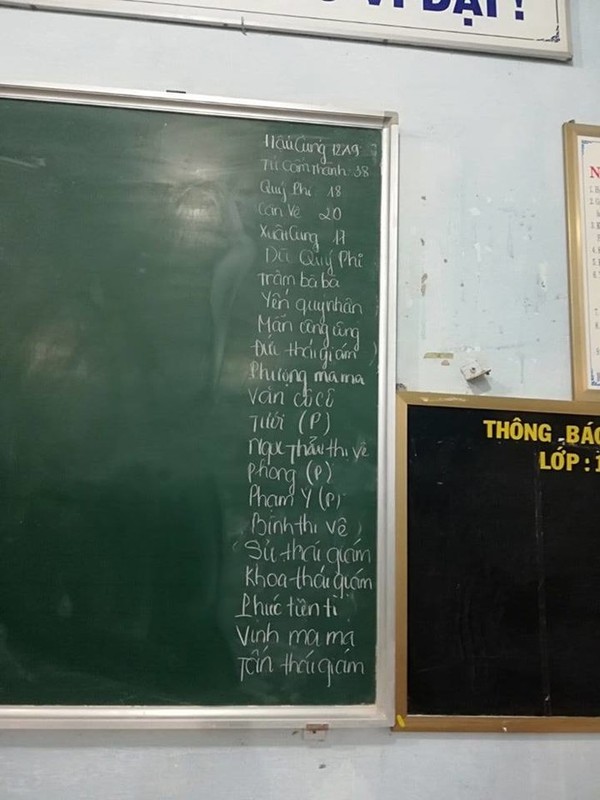 VĨ ĐẠI !
Hậu Cung 12A9
Tử Cấm Thành 38
Quý Phi 18
Cấn Vệ 20
Xuất Cung 17
Dũ Quý Phi
Trâm bà bà
Yến quý nhân
Mẫn công công
Đức thái giám
Phượng ma ma
Vân cô cô
Tưới (P)
Ngọc Thẩu thị vệ
Phong (P)
Phạm Y (P)
Bình thị vệ
Sử thái giám
Khoa thái giám
Phúc tiên tỉ
Vinh ma ma
Tấn thái giám
THÔNG BÁO
LỚP : 1